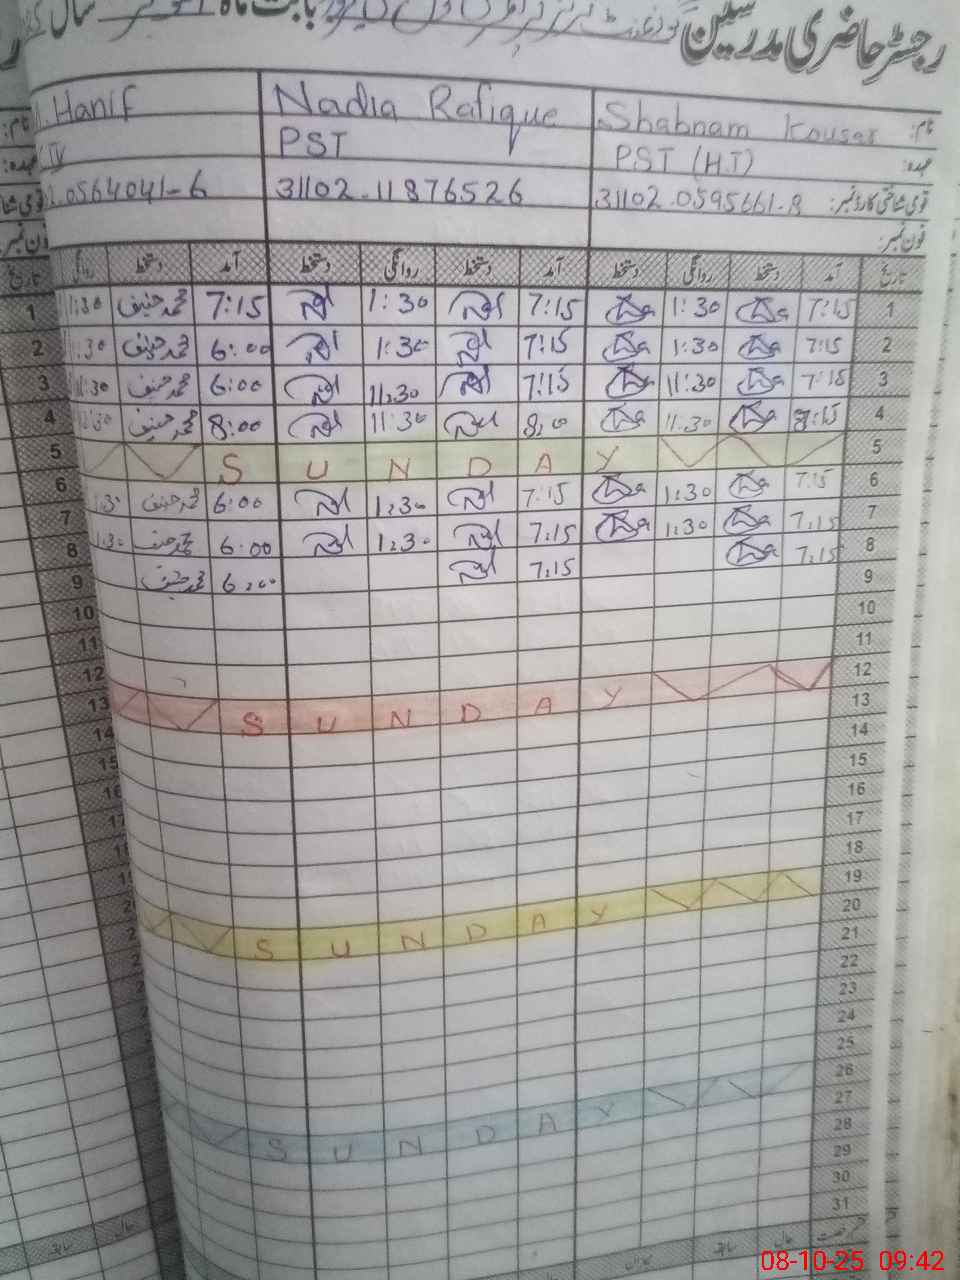 رجسٹر حاضری مدرسین
بابت ماہ
سال
نام: Shabnam Kousar Nadia Rafique Hanif
عہدہ: PST (H.T) PST IV
قومی شناختی کارڈ نمبر: 31102.0595661-8 31102.11876526 2.0564041-6
فون نمبر:
تاریخ آمد دستخط روانگی دستخط آمد دستخط روانگی دستخط آمد دستخط روانگی تاریخ
1 7:15 1:30 7:15 1:30 7:15 محمد حنیف 1:30 1
2 7:15 1:30 7:15 1:30 6:00 محمد حنیف 1:30 2
3 7:15 11:30 7:15 11:30 6:00 محمد حنیف 11:30 3
4 7:15 11:30 8:00 11:30 8:00 محمد حنیف 4
5 S U N D A Y
6 7:15 1:30 7:15 1:30 6:00 محمد حنیف 1:30 6
7 7:15 1:30 7:15 1:30 6:00 محمد حنیف 1:30 7
8 7:15 7:15 6:00 محمد حنیف 8
9 9
10 10
11 11
12 S U N D A Y 12
13 13
14 14
15 15
16 16
17
18
19 S U N D A Y
20
21
22
23
24
25
26 S U N D A Y
27
28
29
30
31
08-10-25 09:42